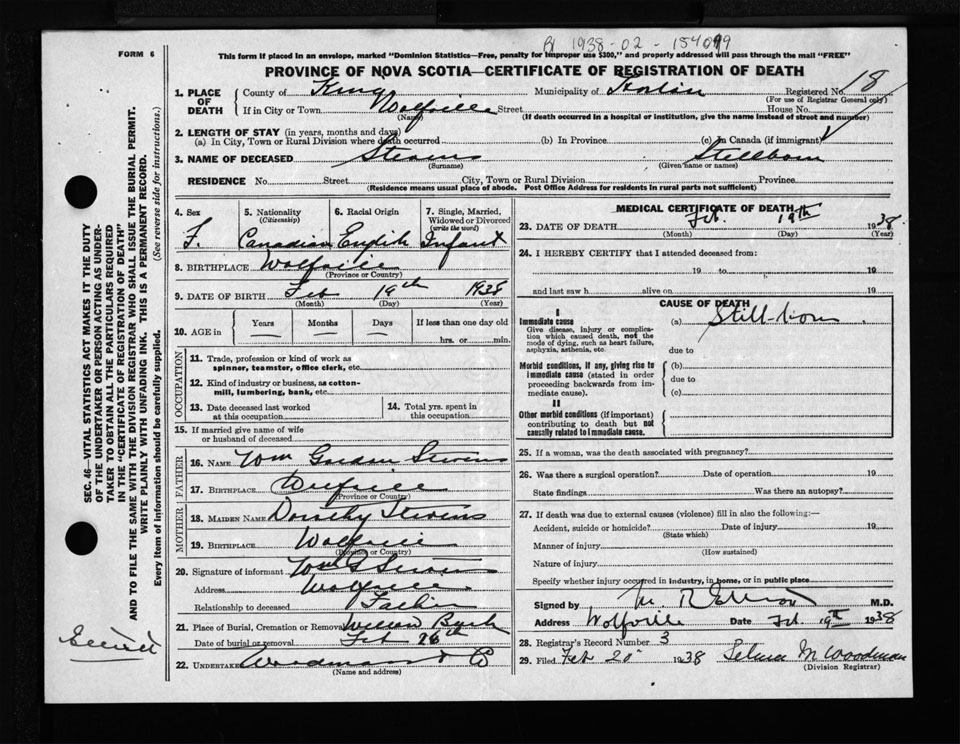 1938-02-154099
FORM 6
This form if placed in an envelope, marked "Dominion Statistics—Free, penalty for improper use $300," and properly addressed will pass through the mail "FREE"
PROVINCE OF NOVA SCOTIA—CERTIFICATE OF REGISTRATION OF DEATH
1. PLACE OF DEATH
County of Kings Municipality of Registered No. 18
(For use of Registrar General only)
If in City or Town Wolfville Street House No.
(Name) (If death occurred in a hospital or institution, give the name instead of street and number)
2. LENGTH OF STAY (in years, months and days)
(a) In City, Town or Rural Division where death occurred (b) In Province (c) In Canada (if immigrant)
3. NAME OF DECEASED Stevens Stillborn
(Surname) (Given name or names)
RESIDENCE No. Street City, Town or Rural Division Province
(Residence means usual place of abode. Post Office Address for residents in rural parts not sufficient)
4. Sex F.
5. Nationality (Citizenship) Canadian
6. Racial Origin English
7. Single, Married, Widowed or Divorced (write the word) Infant
8. BIRTHPLACE Wolfville
(Province or Country)
9. DATE OF BIRTH Feb 19th 1938
(Month) (Day) (Year)
10. AGE in Years Months Days If less than one day old
hrs. or min.
OCCUPATION
11. Trade, profession or kind of work as spinner, teamster, office clerk, etc.
12. Kind of industry or business, as cotton-mill, lumbering, bank, etc.
13. Date deceased last worked at this occupation
14. Total yrs. spent in this occupation
15. If married give name of wife or husband of deceased
FATHER
16. NAME Wm Gordon Stevens
17. BIRTHPLACE Wolfville
(Province or Country)
MOTHER
18. MAIDEN NAME Dorothy Stevens
19. BIRTHPLACE Wolfville
(Province or Country)
20. Signature of informant Wm G Stevens
Address Wolfville
Relationship to deceased Father
21. Place of Burial, Cremation or Removal
Date of burial or removal Feb
22. UNDERTAKER Woodman & Co
(Name and address)
MEDICAL CERTIFICATE OF DEATH
23. DATE OF DEATH Feb. 19th 1938
(Month) (Day) (Year)
24. I HEREBY CERTIFY that I attended deceased from:
19 to 19
and last saw h alive on 19
CAUSE OF DEATH
I
Immediate cause
Give disease, injury or complication which caused death, not the mode of dying, such as heart failure, asphyxia, asthenia, etc.
(a) Still-born
due to
Morbid conditions, if any, giving rise to immediate cause (stated in order proceeding backwards from immediate cause).
(b)
due to
(c)
II
Other morbid conditions (if important) contributing to death but not causally related to immediate cause.
25. If a woman, was the death associated with pregnancy?
26. Was there a surgical operation? Date of operation 19
State findings Was there an autopsy?
27. If death was due to external causes (violence) fill in also the following:—
Accident, suicide or homicide? Date of injury 19
(State which)
Manner of injury
(How sustained)
Nature of injury
Specify whether injury occurred in industry, in home, or in public place
Signed by M.D.
Address Wolfville Date Feb. 19th 1938
28. Registrar's Record Number 3
29. Filed Feb 20 1938 Selma M Woodman
(Division Registrar)
SEC. 46—VITAL STATISTICS ACT MAKES IT THE DUTY
OF THE UNDERTAKER OR PERSON ACTING AS UNDER-
TAKER TO OBTAIN ALL THE PARTICULARS REQUIRED
IN THE "CERTIFICATE OF REGISTRATION OF DEATH"
AND TO FILE THE SAME WITH THE DIVISION REGISTRAR WHO SHALL ISSUE THE BURIAL PERMIT.
WRITE PLAINLY WITH UNFADING INK. THIS IS A PERMANENT RECORD.
Every item of information should be carefully supplied. (See reverse side for instructions.)